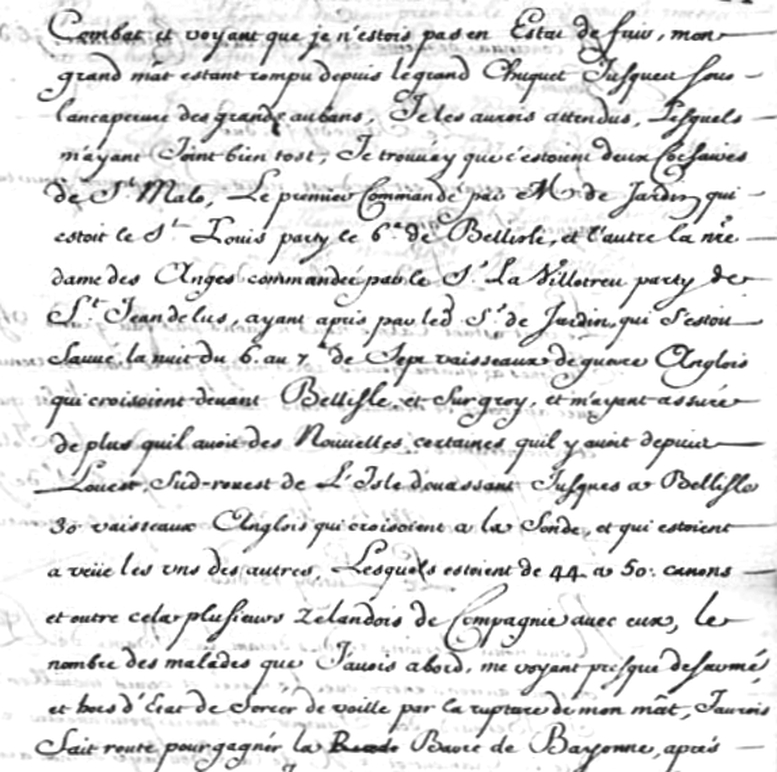 Combat et voyant que je n'estois pas en Estat de fuir, mon
grand mât estant rompu depuis le grand Chuquet Jusques sous
lancapeure des grands aubans, Je les aurois attendus, Lesquels
m'ayant Joint bien tost, Je trouvay que c'estoient deux Corsaires
de St. Malo, Le premier Commandé par Mr. de Jardin, qui
estoit le St. Louis party le 6e. de Bellisle, et l'autre la nre
dame des Anges commandeé par le Sr. La Villotreu party de
St. Jean de lus, ayant apris par led. Sr. de Jardin, qui s'estoit
Sauué, la nuit du 6. au 7e. de Sept vaisseaux de guerre Anglois
qui croisoient deuant Bellisle, et Surgroy, et m'ayant assuré
de plus quil auoit des Nouuelles certaines quil y auoit depuis
Louest, Sud-rouest de L'Isle d'ouassant Jusques a Bellisle
30 vaisseaux Anglois qui croisoient a la Sonde, et qui estoient
a veüe les vns des autres, Lesquels estoient de 44 a 50. canons
et outre cela plusieurs zelandois de Compagnie auec eux, le
nombre des malades que J'auois abord, me voyant presque desarmé,
et hors d'Etat de forcer de voille par la rupture de mon mât, J'aurois
fait route pour gagner la Baore de Bayonne, aprés